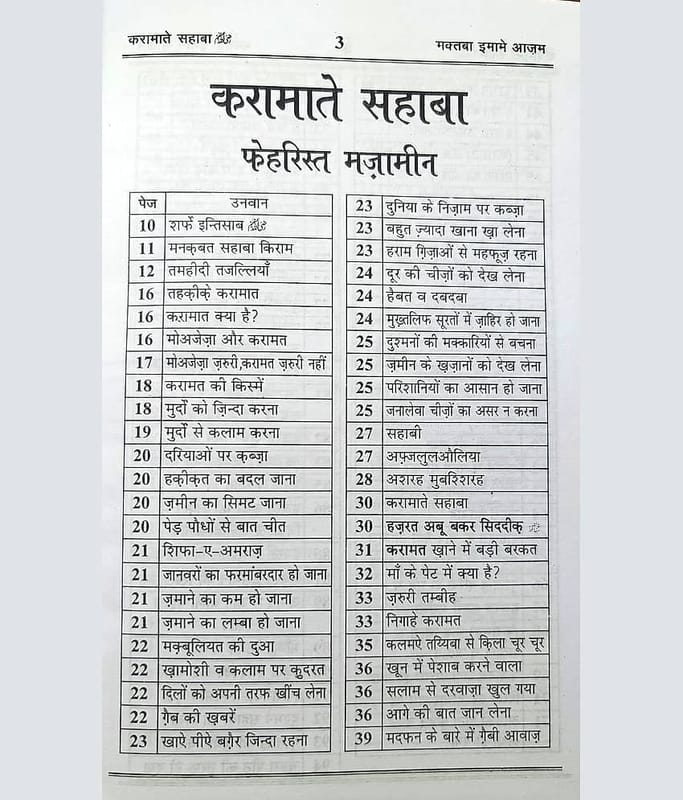 करामाते सहाबा ﷺ
3
मक्तबा इमामे आज़म
करामाते सहाबा
फेहरिस्त मज़ामीन
पेज उनवान
10 शर्फे इन्तिसाब ﷺ
11 मनक़बत सहाबा किराम
12 तमहीदी तजल्लियाँ
16 तहक़ीक़े करामात
16 करामात क्या है?
16 मोअजेज़ा और करामत
17 मोअजेज़ा ज़रुरी,करामत ज़रुरी नहीं
18 करामत की किस्में
18 मुर्दो को ज़िन्दा करना
19 मुर्दो से कलाम करना
20 दरियाओं पर क़ब्ज़ा
20 हक़ीक़त का बदल जाना
20 ज़मीन का सिमट जाना
20 पेड़ पौधों से बात चीत
21 शिफा-ए-अमराज़
21 जानवरों का फरमांबरदार हो जाना
21 ज़माने का कम हो जाना
21 ज़माने का लम्बा हो जाना
22 मक़्बूलियत की दुआ
22 ख़ामोशी व कलाम पर क़ुदरत
22 दिलों को अपनी तरफ खींच लेना
22 ग़ैब की ख़बरें
23 खाऐ पीऐ बग़ैर जिन्दा रहना
23 दुनिया के निज़ाम पर कब्ज़ा
23 बहुत ज़्यादा खाना खा लेना
23 हराम ग़िज़ाओं से महफूज़ रहना
24 दूर की चीज़ों को देख लेना
24 हैबत व दबदबा
24 मुख़्तलिफ सूरतों में ज़ाहिर हो जाना
25 दुश्मनों की मक्कारियों से बचना
25 ज़मीन के ख़ज़ानों को देख लेना
25 परिशानियों का आसान हो जाना
25 जनालेवा चीज़ों का असर न करना
27 सहाबी
27 अफ़्ज़लुलऔलिया
28 अशरह मुबश्शिरह
30 करामाते सहाबा
30 हज़रत अबू बकर सिद्दीक़
31 करामत खाने में बड़ी बरकत
32 माँ के पेट में क्या है?
33 ज़रुरी तम्बीह
33 निगाहे करामत
35 कलमऐ तय्यिबा से क़िला चूर चूर
36 खून में पेशाब करने वाला
36 सलाम से दरवाज़ा खुल गया
36 आगे की बात जान लेना
39 मदफन के बारे में ग़ैबी आवाज़